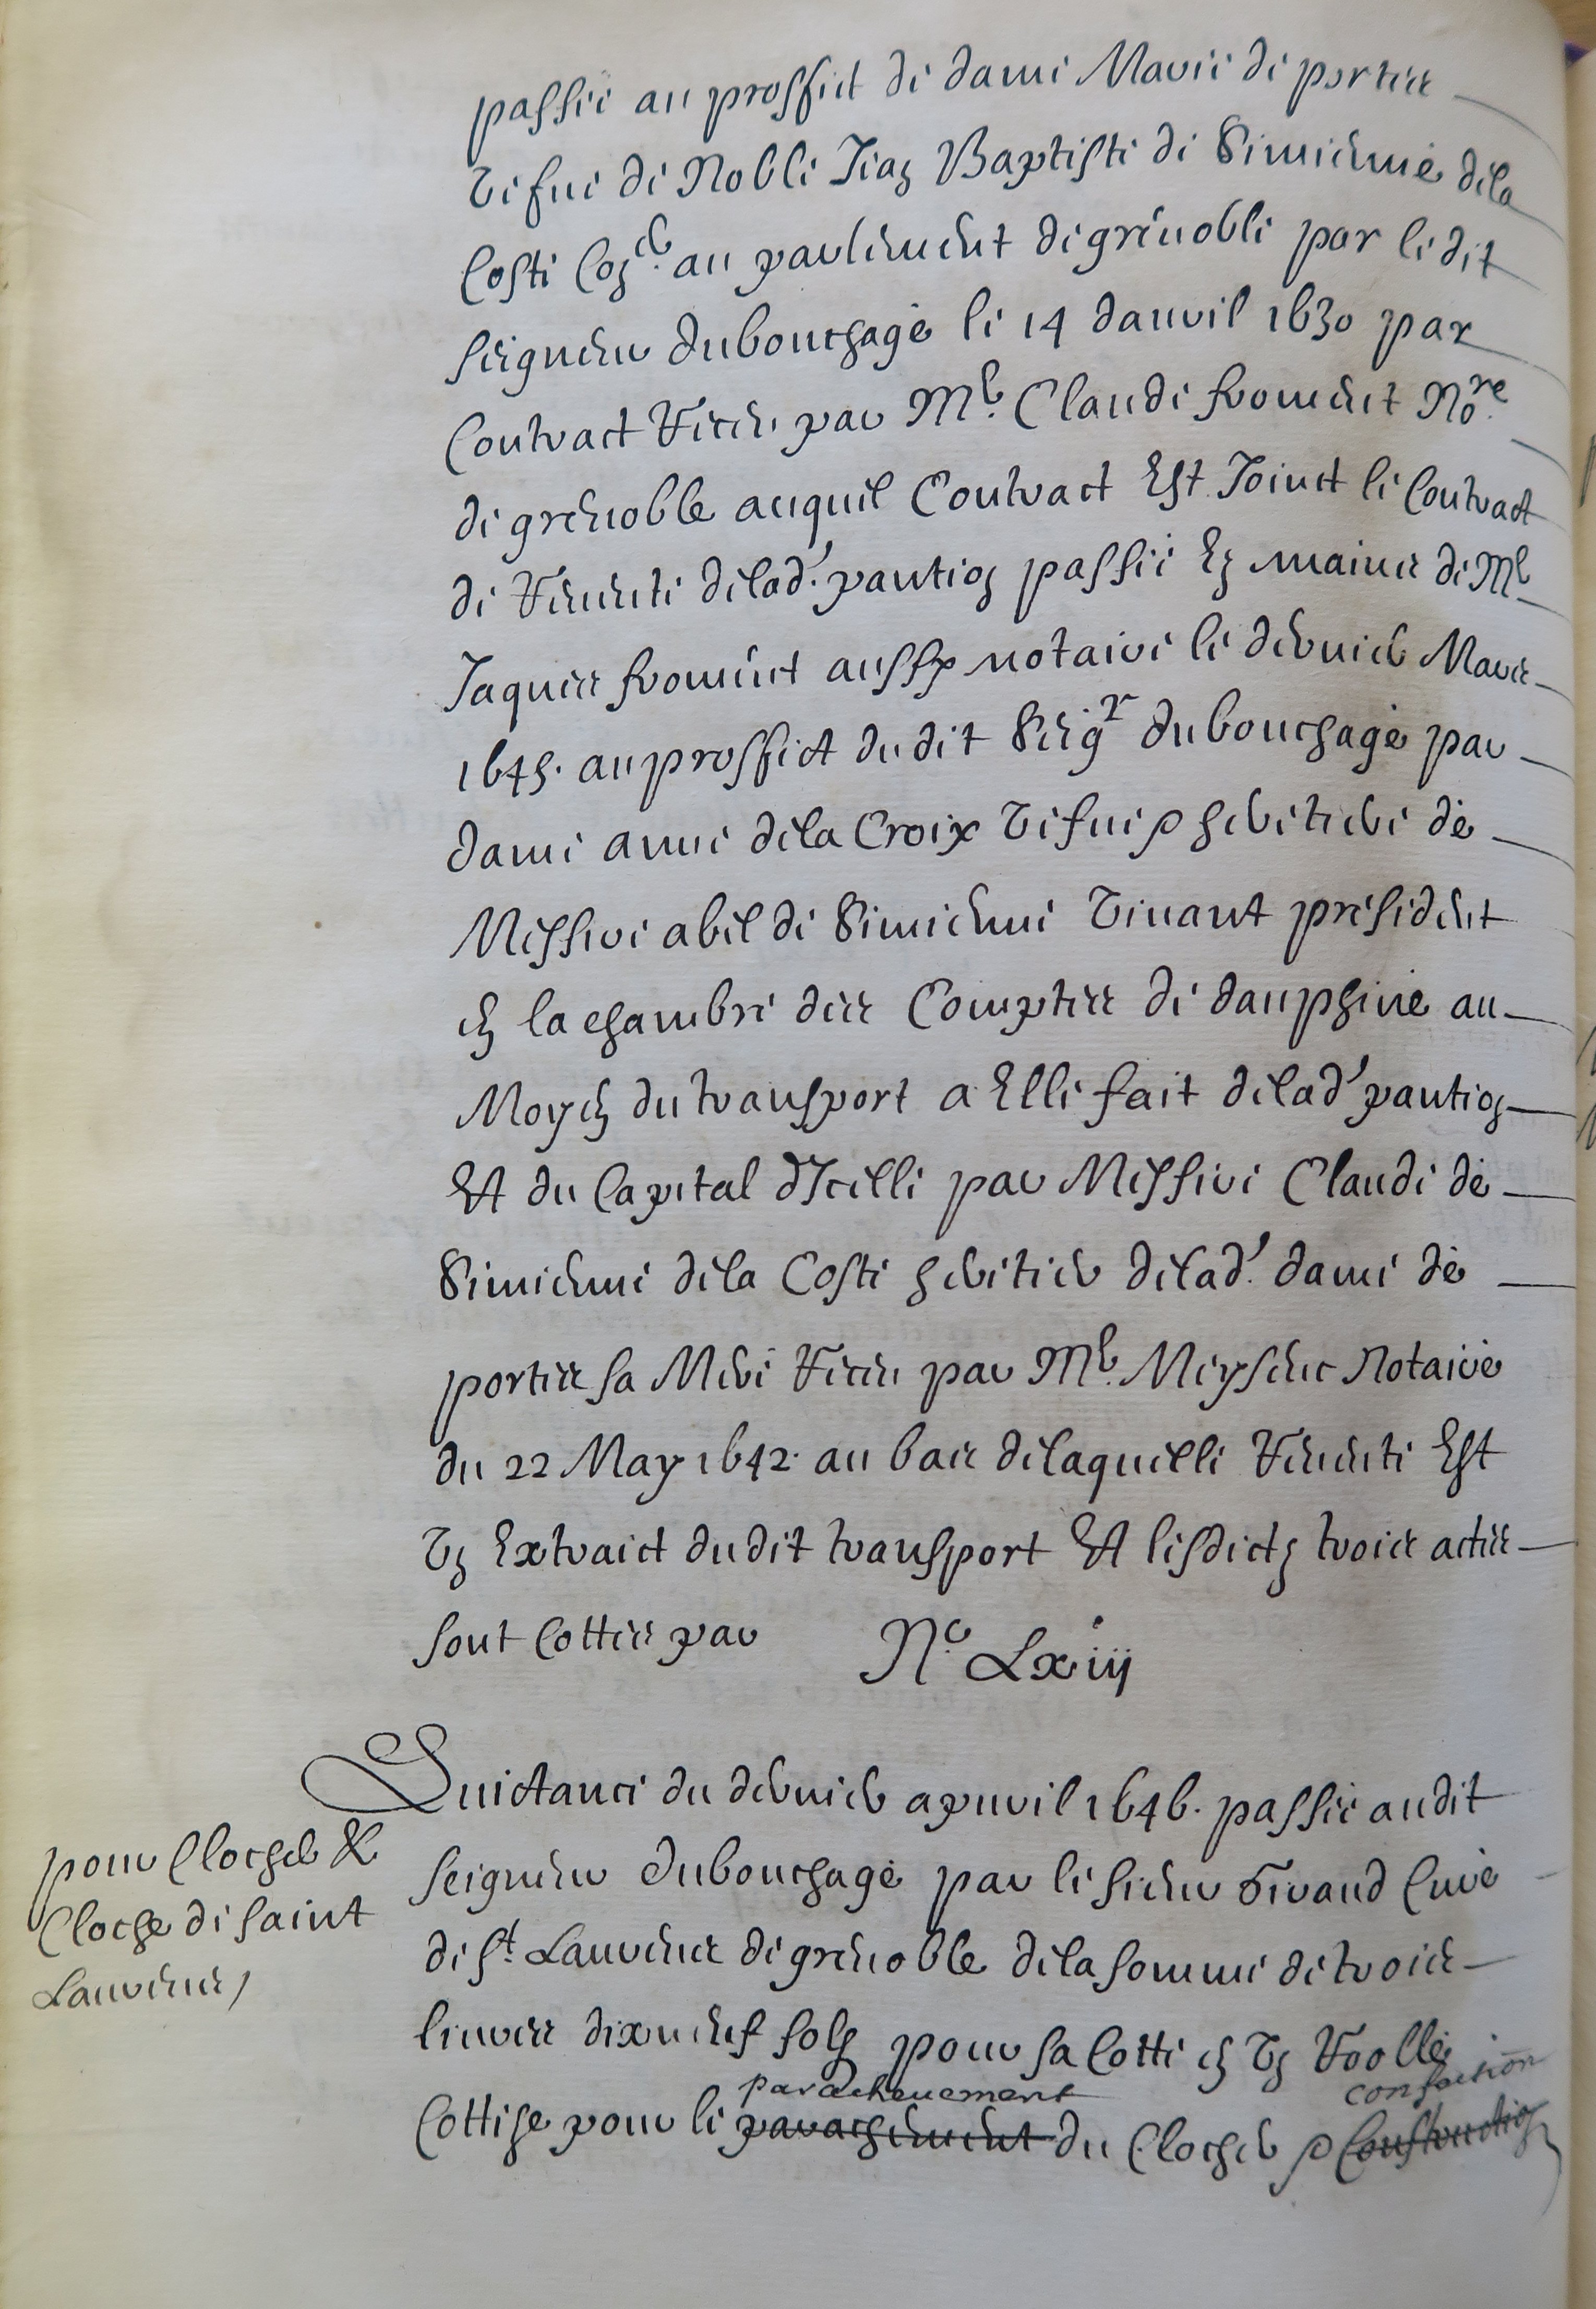 passée au proffict de dame Marie de portes
vefue de Noble Jean Baptiste de Simienne de la
Coste Con.er au parlement de grenoble par le dit
seigneur du bouchage le 14 d'auril 1630 par
Contract Receu par M.e Claude froment No.re
de grenoble auquel Contract Est Joinct le Contract
de Reuente de lad.' pantion passée Es mains de M.e
Jaques froment aussy notaire le dernier Mars
1645. au proffict du dit Seig.r du bouchage par
dame anne de la Croix vefue & heritiere de
Messire abel de Simienne viuant president
en la chambre des Comptes de dauphiné au
Moyen du transport a Elle fait de lad' pantion
Et du Capital d'Icelle par Messire Claude de
Simienne de la Coste heritier de lad.' dame de
portes sa Mere Receu par M.e Meysenc Notaire
du 22 May 1642. au bas de laquelle Reuente Est
vn Extraict du dit transport Et lesdicts trois actes
sont Cottes par N.o Lxiij
Quictance du dernier apuril 1646. passée au dit
pour Clocher &
Cloche de saint
Laurens,
seigneur du bouchage par le sieur Giraud Curé
de S.t Laurens de grenoble de la somme de trois
liures dixneuf sols pour sa Cotte en vn Roolle
parachеuement confection
Cottise pour le parachement du Clocher & Construction